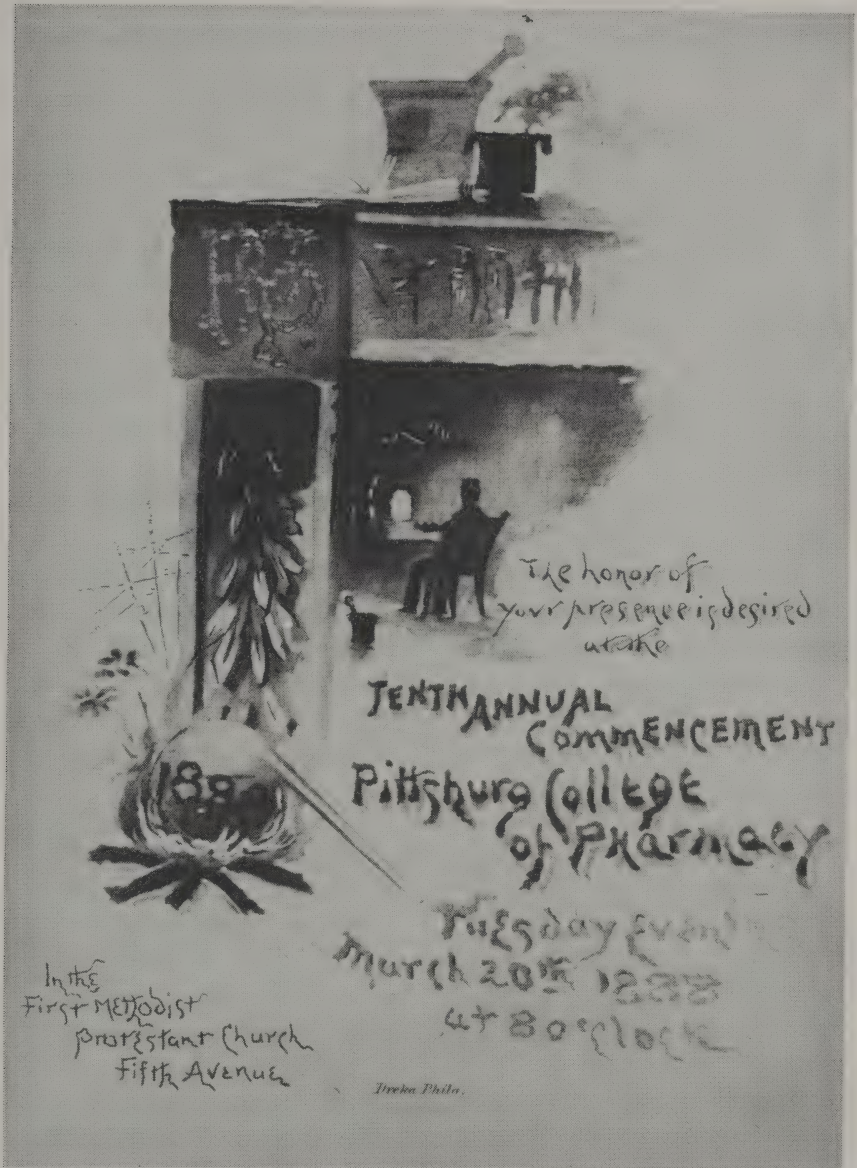 The honor of
your presence is desired
at the
TENTH ANNUAL
COMMENCEMENT
Pittsburg College
of Pharmacy
Tuesday
March 20th 1888
at 8 o'clock
In the
First Methodist
Protestant Church
Fifth Avenue
Dreka Phila.